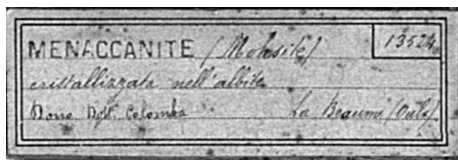 MENACCANITE (Mohsite) 13524
cristallizzata nell'albite
Dono Dott. Colomba La Beaume (Oulx)